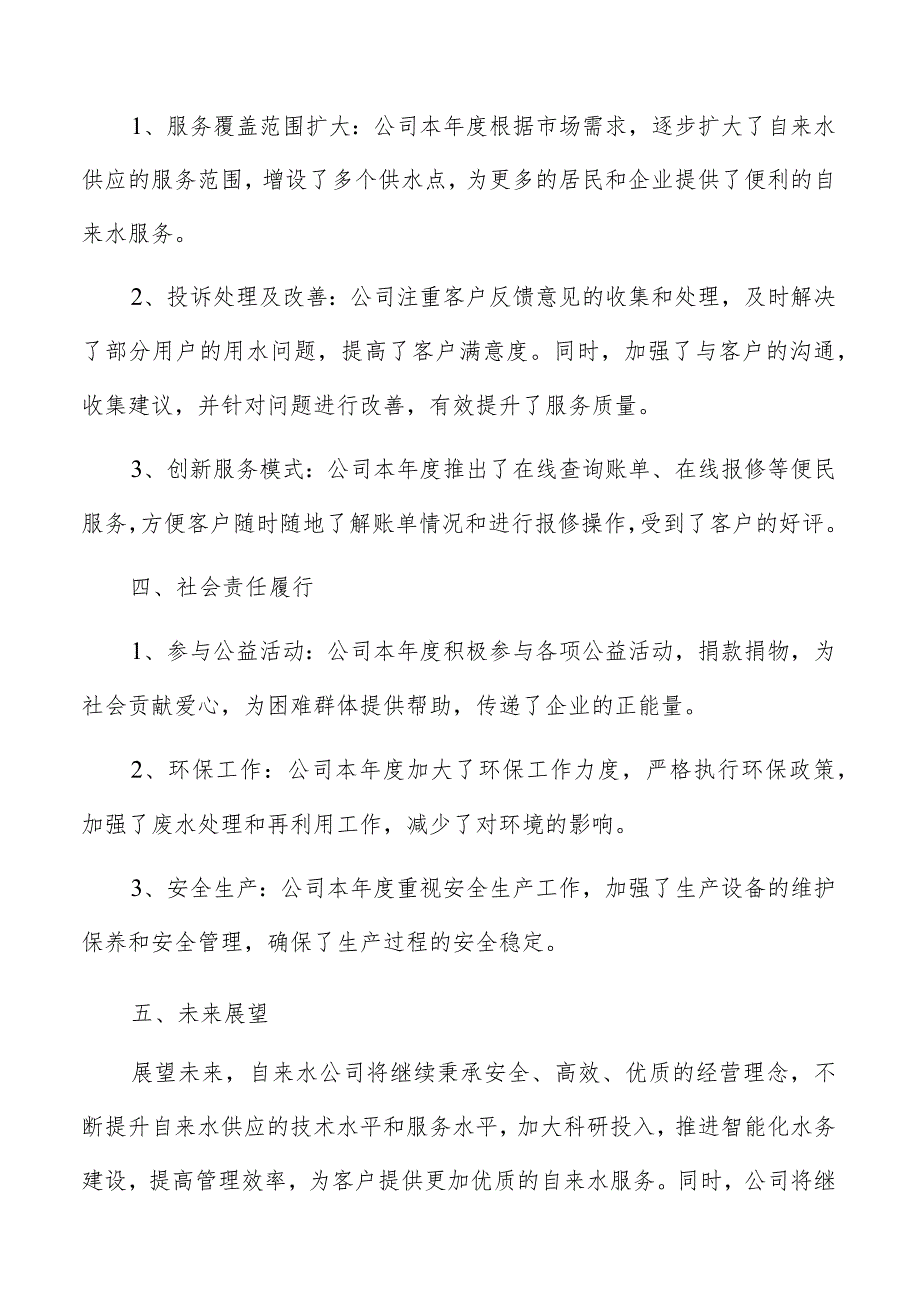 1、服务覆盖范围扩大：公司本年度根据市场需求，逐步扩大了自来水
供应的服务范围，增设了多个供水点，为更多的居民和企业提供了便利的自
来水服务。
2、投诉处理及改善：公司注重客户反馈意见的收集和处理，及时解决
了部分用户的用水问题，提高了客户满意度。同时，加强了与客户的沟通，
收集建议，并针对问题进行改善，有效提升了服务质量。
3、创新服务模式：公司本年度推出了在线查询账单、在线报修等便民
服务，方便客户随时随地了解账单情况和进行报修操作，受到了客户的好评。
四、社会责任履行
1、参与公益活动：公司本年度积极参与各项公益活动，捐款捐物，为
社会贡献爱心，为困难群体提供帮助，传递了企业的正能量。
2、环保工作：公司本年度加大了环保工作力度，严格执行环保政策，
加强了废水处理和再利用工作，减少了对环境的影响。
3、安全生产：公司本年度重视安全生产工作，加强了生产设备的维护
保养和安全管理，确保了生产过程的安全稳定。
五、未来展望
展望未来，自来水公司将继续秉承安全、高效、优质的经营理念，不
断提升自来水供应的技术水平和服务水平，加大科研投入，推进智能化水务
建设，提高管理效率，为客户提供更加优质的自来水服务。同时，公司将继